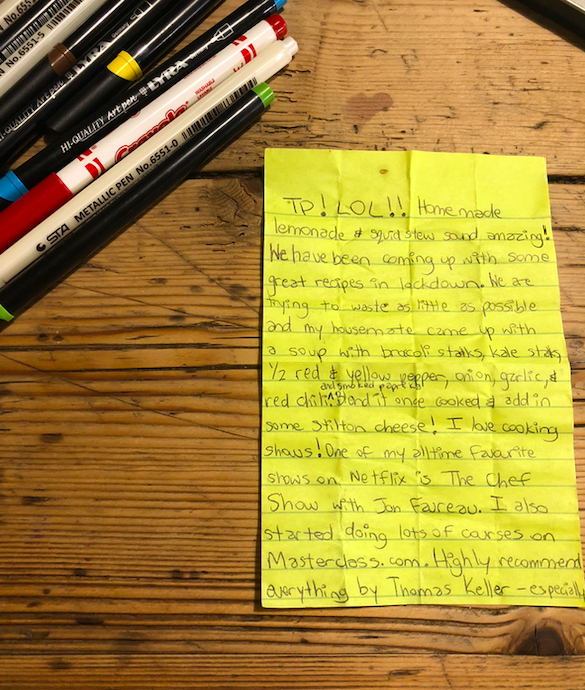 No.6551-5
LYRA
HI-QUALITY Art pen LYRA
Crayola
WASHABLE
STA METALLIC PEN No.6551-0
TP! LOL!! Homemade
lemonade & squid stew sound amazing!
We have been coming up with some
great recipes in lockdown. We are
trying to waste as little as possible
and my housemate came up with
a soup with brocoli stalks, kale stalks,
1/2 red & yellow pepper, onion, garlic, &
and smoked paprika
red chili. Blend it once cooked & add in
some stilton cheese! I love cooking
shows! One of my alltime favourite
shows on Netflix is The Chef
Show with Jon Favreau. I also
started doing lots of courses on
Masterclass.com. Highly recommend
everything by Thomas Keller - especially